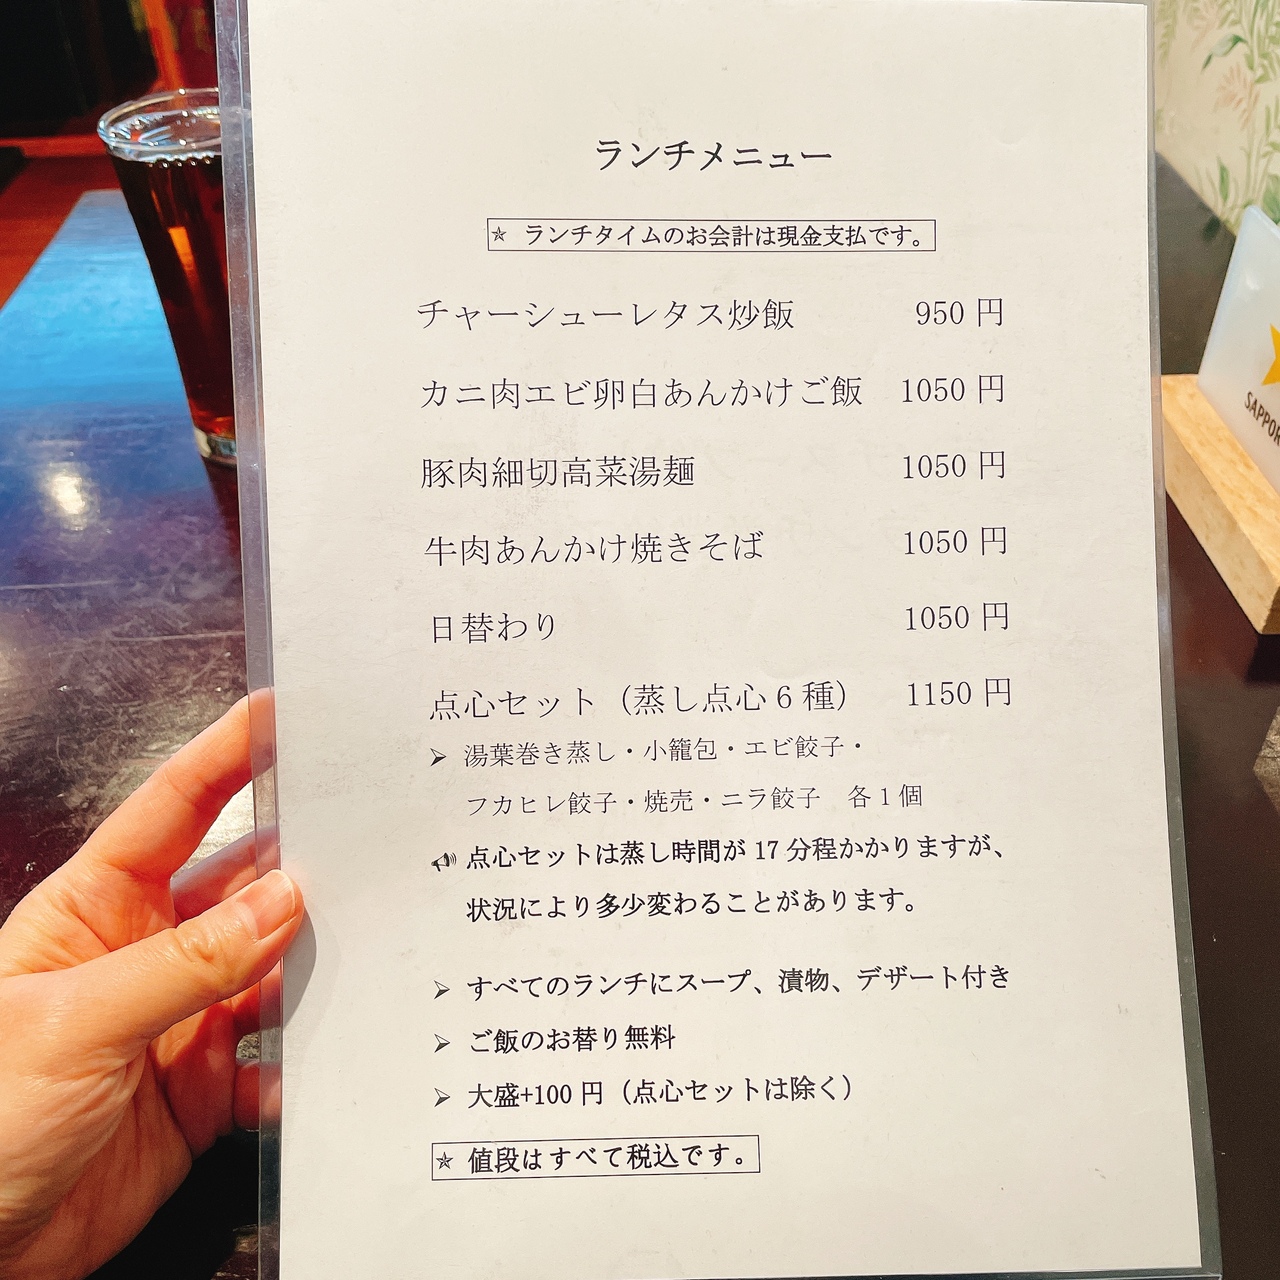 ランチメニュー
☆ ランチタイムのお会計は現金支払です。
チャーシューレタス炒飯 950 円
カニ肉エビ卵白あんかけご飯 1050 円
豚肉細切高菜湯麺 1050 円
牛肉あんかけ焼きそば 1050 円
日替わり 1050 円
点心セット（蒸し点心 6 種） 1150 円
➢ 湯葉巻き蒸し・小籠包・エビ餃子・
フカヒレ餃子・焼売・ニラ餃子 各 1 個
点心セットは蒸し時間が 17 分程かかりますが、
状況により多少変わることがあります。
➢ すべてのランチにスープ、漬物、デザート付き
➢ ご飯のお替り無料
➢ 大盛+100 円（点心セットは除く）
☆ 値段はすべて税込です。
SAPPOR